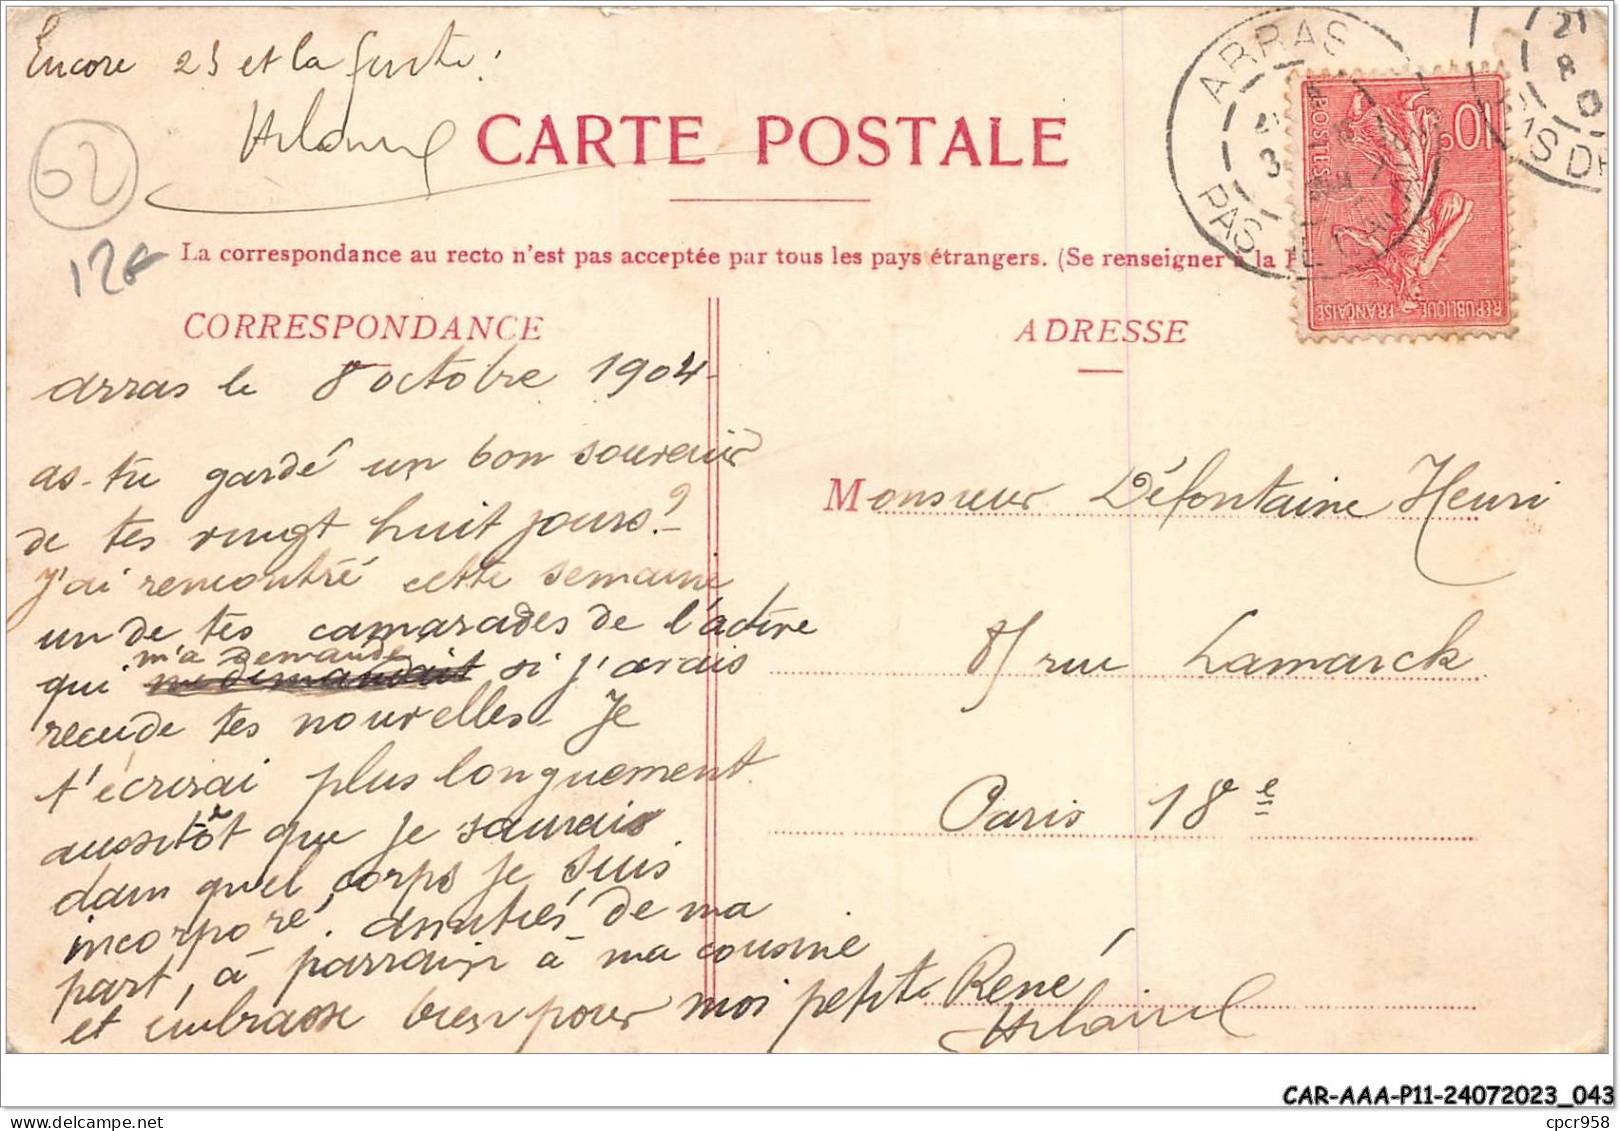 Encore 25 et la fuite!
Hilaire
02
12€
CARTE POSTALE
La correspondance au recto n'est pas acceptée par tous les pays étrangers. (Se renseigner à la
ARRAS
PAS DE CALAIS
21
8
PAS DE
10c
POSTES
REPUBLIQUE FRANÇAISE
CORRESPONDANCE
ADRESSE
Arras le 8 octobre 1904
as-tu gardé un bon souvenir
de tes vingt huit jours?
J'ai rencontré cette semaine
un de tes camarades de l'active
m'a demandé
qui me demandait si j'avais
recu de tes nouvelles. Je
t'écrirai plus longuement
aussitôt que je saurais
dans quel corps je suis
incorporé. Amitiés de ma
part, à parrain à ma cousine
et embrasse bien pour moi petit René
Hilaire
Monsieur Défontaine Henri
8 rue Lamarck
Paris 18e
CAR-AAA-P11-24072023_043
cpcr958